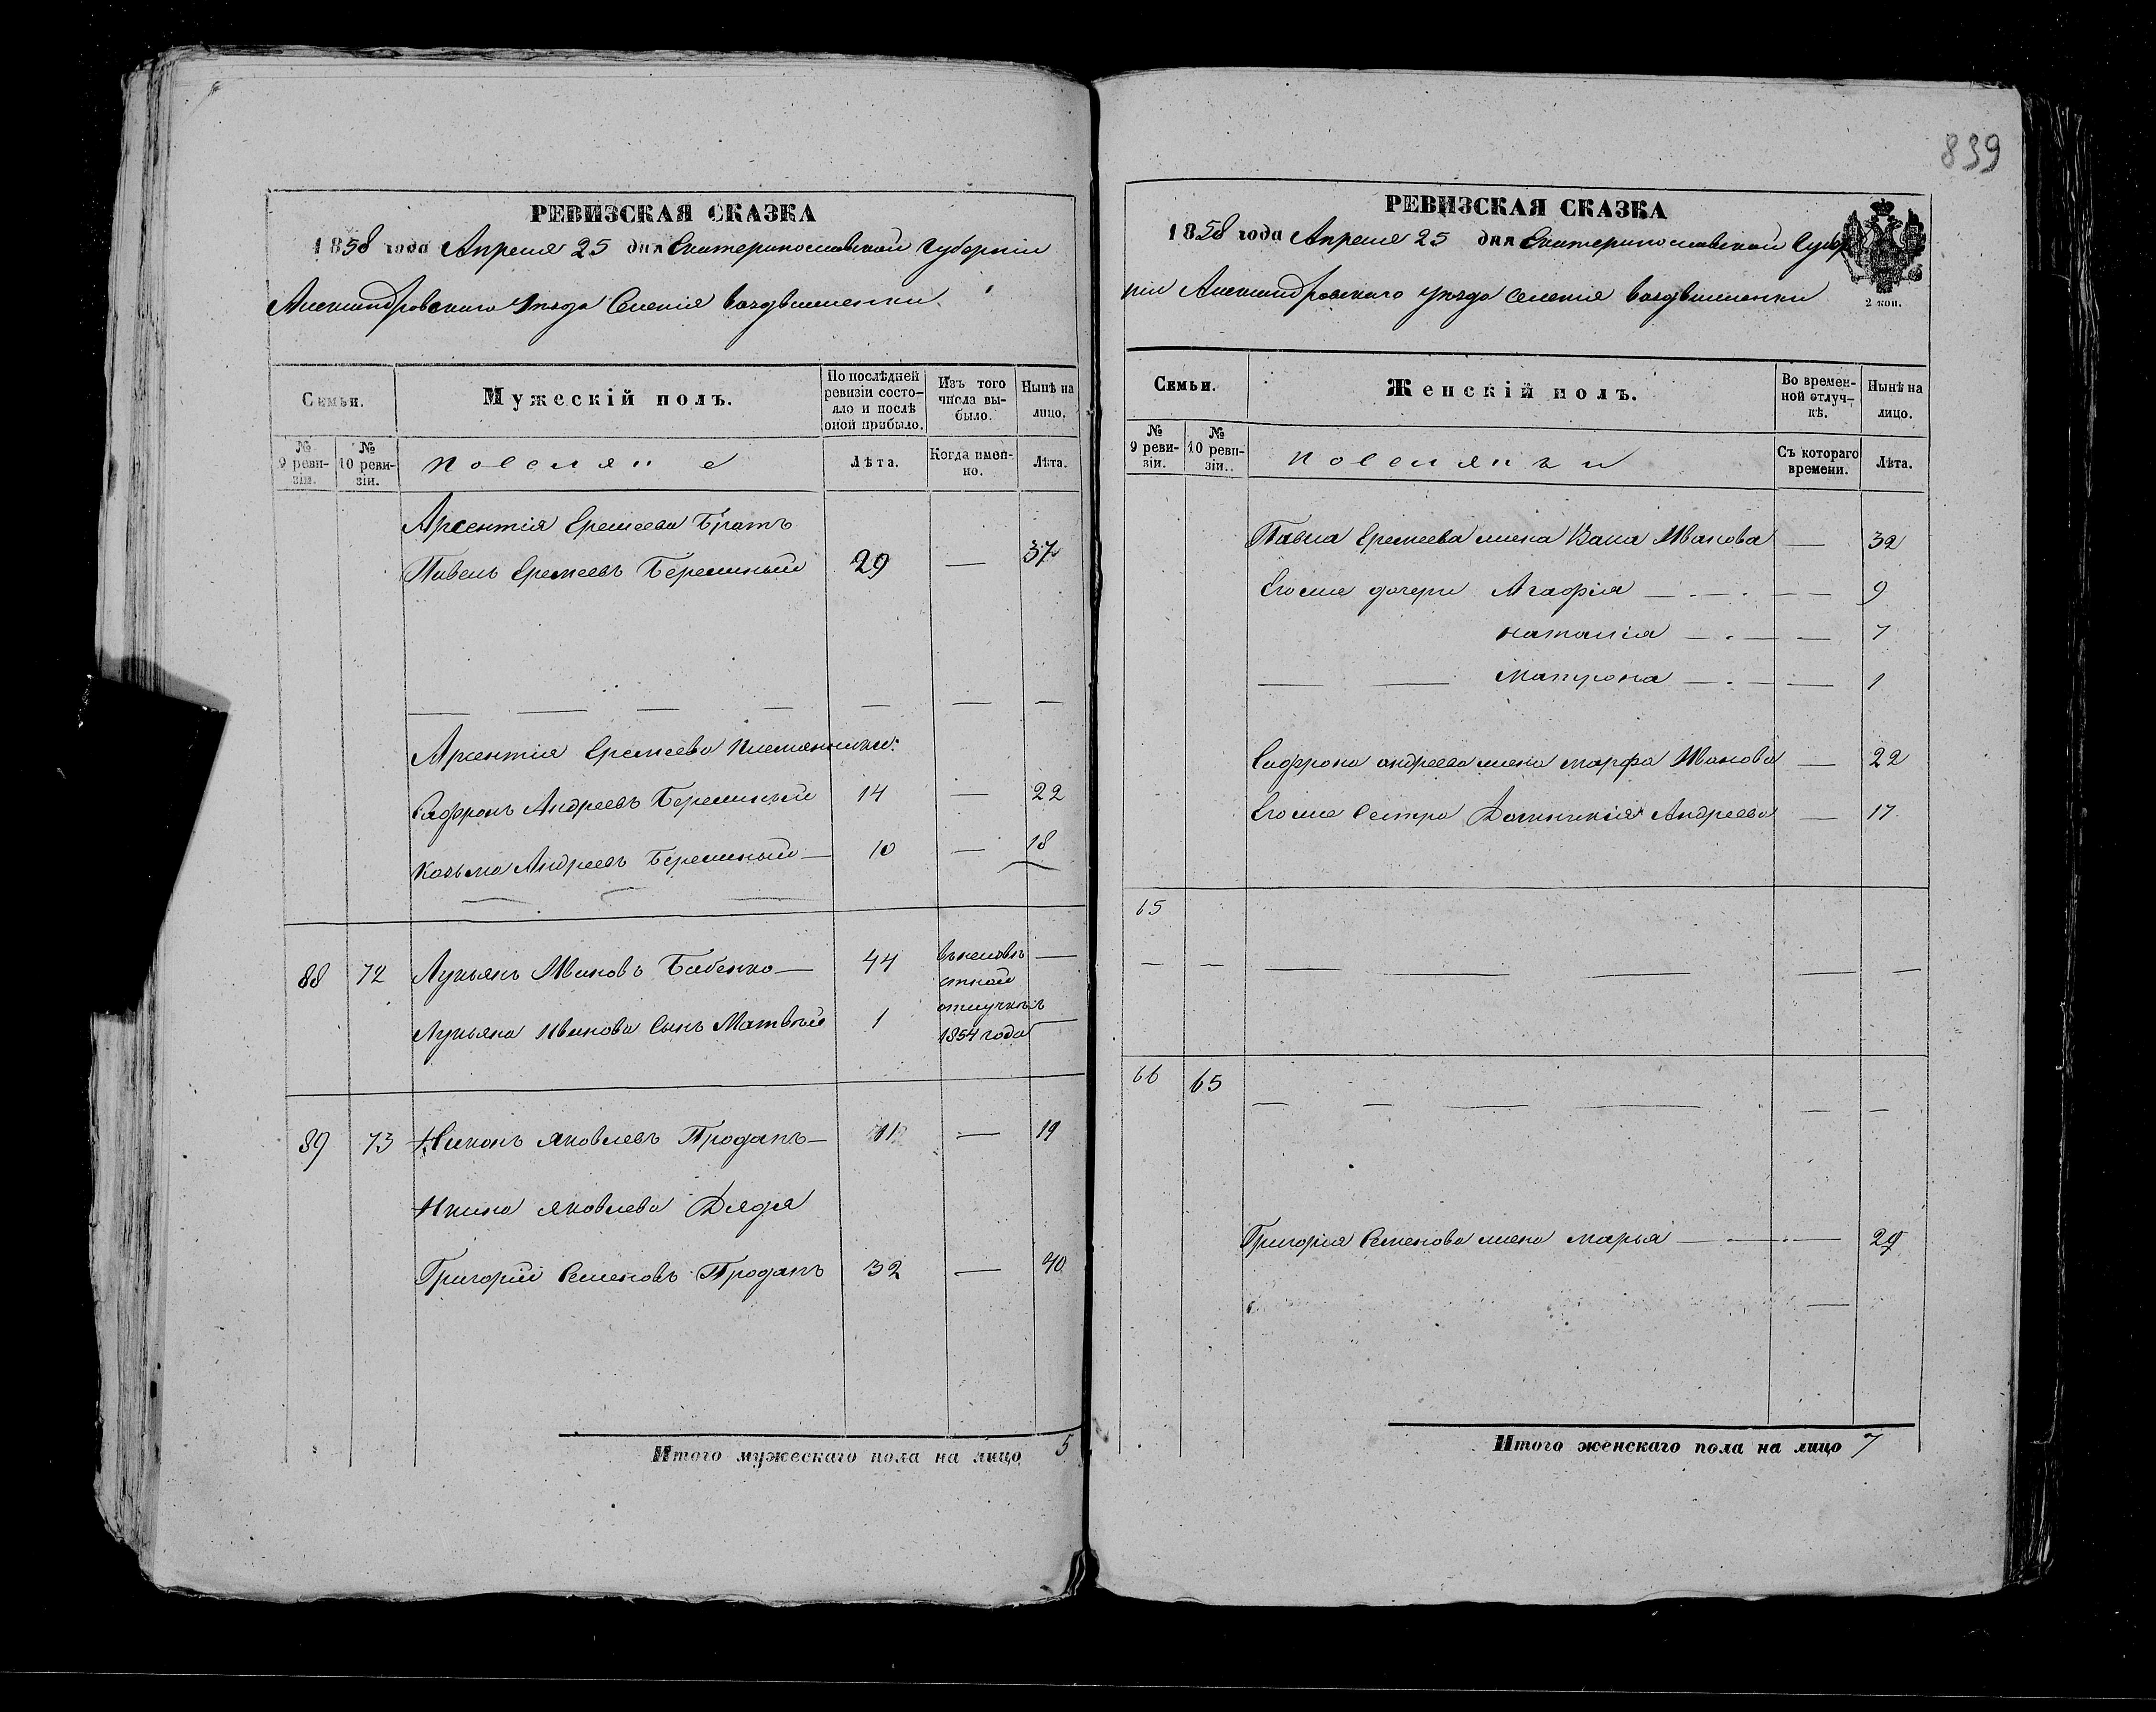 839
РЕВИЗСКАЯ СКАЗКА
1858 года Апреля 25 дня Екатеринославской Губерніи
Александровскаго Уѣзда Селенія Воздвиженки.
Семьи.
Мужескій полъ.
По послѣдней ревизіи состояло и послѣ оной прибыло.
Изъ того числа выбыло.
Нынѣ на лицо.
№ 9 ревизіи.
№ 10 ревизіи.
Поселяне
Лѣта.
Когда именно.
Лѣта.
Арсентія Еремеева Братъ
Павелъ Еремеевъ 29 — 37
Арсентія Еремеева племянники:
Сафронъ Андреевъ 14 — 22
Козьма Андреевъ — 10 — 18
88 72 Лукьянъ Ивановъ Бабенко — 44 въ неизвѣ —
стной
отлучкѣ съ
Лукьяна Иванова Сынъ Матвѣй 1 1854 года —
89 73 Никонъ Яковлевъ Проданъ — 11 — 19
Яковлева Дядя
Григорій Семеновъ Проданъ 32 — 40
Итого мужескаго пола на лицо 5
РЕВИЗСКАЯ СКАЗКА
1858 года Апреля 25 дня Екатеринославской Губер
ніи Александровскаго Уѣзда Селенія Воздвиженки
2 коп.
Семьи.
Женскій полъ.
Во временной отлучкѣ.
Нынѣ на лицо.
№ 9 ревизіи.
№ 10 ревизіи.
Поселянки
Съ котораго времени.
Лѣта.
Павла Еремеева жена Иванова — 32
Егоже дочери Агафія — 9
Наталія — 7
Матрона — 1
Сафрона Андреева жена Марфа Иванова — 22
Егоже Сестра Андреева — 17
65
66 65
Григорія Семенова жена Марья — 29
Итого женскаго пола на лицо 7